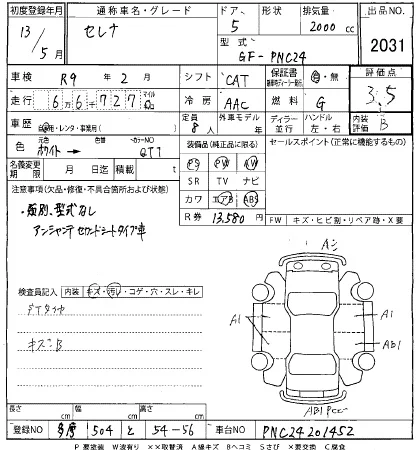 初度登録年月 通称車名・グレード ドア、 形状 排気量 出品NO
13 / 5月 セレナ 5 2000 cc 2031
型式 GF-PNC24
車検 R9年 2月 シフト CAT 保証書 有・無 評価点 3.5
走行 6 6千 7 2 7 マイル Km 冷房 AAC 燃料 G
車歴 自家用・レンタ・事業用( ) 定員 8人 外車モデル 年 ディーラー 並行 ハンドル 左・右 内装評価 B
色 元色 ホワイト → 色替 カラーNO QT1 装備品(純正品に限る) セールスポイント(正常に機能するもの)
名義変更期限 月 日迄 積載 t PS PW
注意事項(欠品・修復・不具合箇所および状態) SR TV ナビ
・類別、型式なし カワ エアB ABS
アンシャンテ セカンドシートタイプ車 R券 13,580 FW キズ・ヒビ割・リペア跡・X要
検査員記入 内装 キズ・汚れ・コゲ・穴・スレ・キレ
キズ B
A1 A1
AB1
AB1 Pcc
長さ cm 幅 cm 高さ cm
登録NO 多摩 504 と 54-56 車台NO PNC24 201452
P要塗装 W波有り XX取替済 A線キズ Bヘコミ Sさび X要交換 C腐食